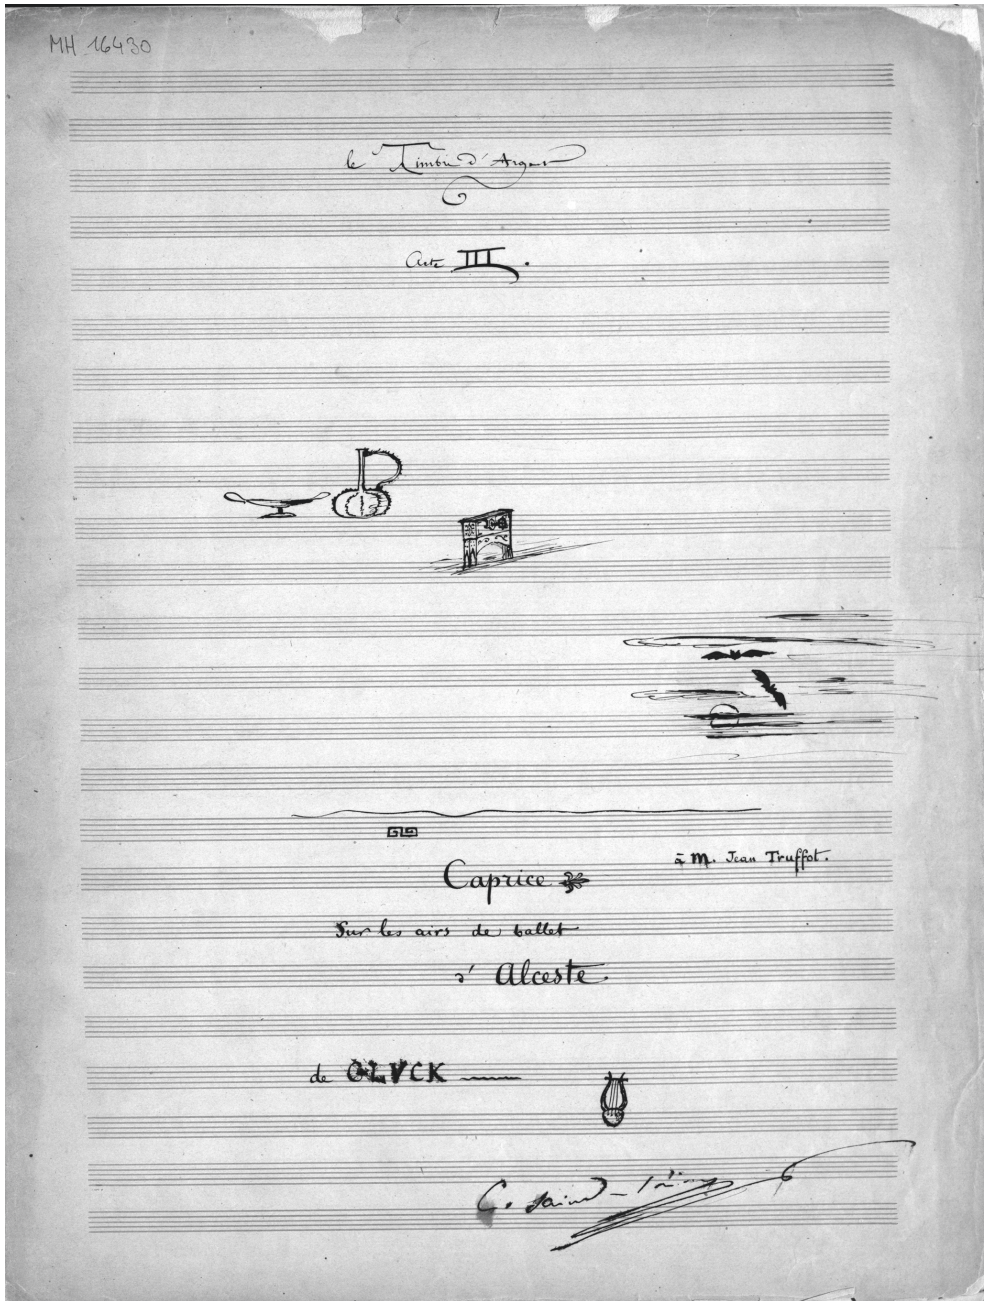 MH 16430
le Timbre d'Argent
Acte III.
à M. Jean Truffot.
Caprice
Sur les airs de ballet
d'Alceste
de GLVCK
C. Saint-Saëns